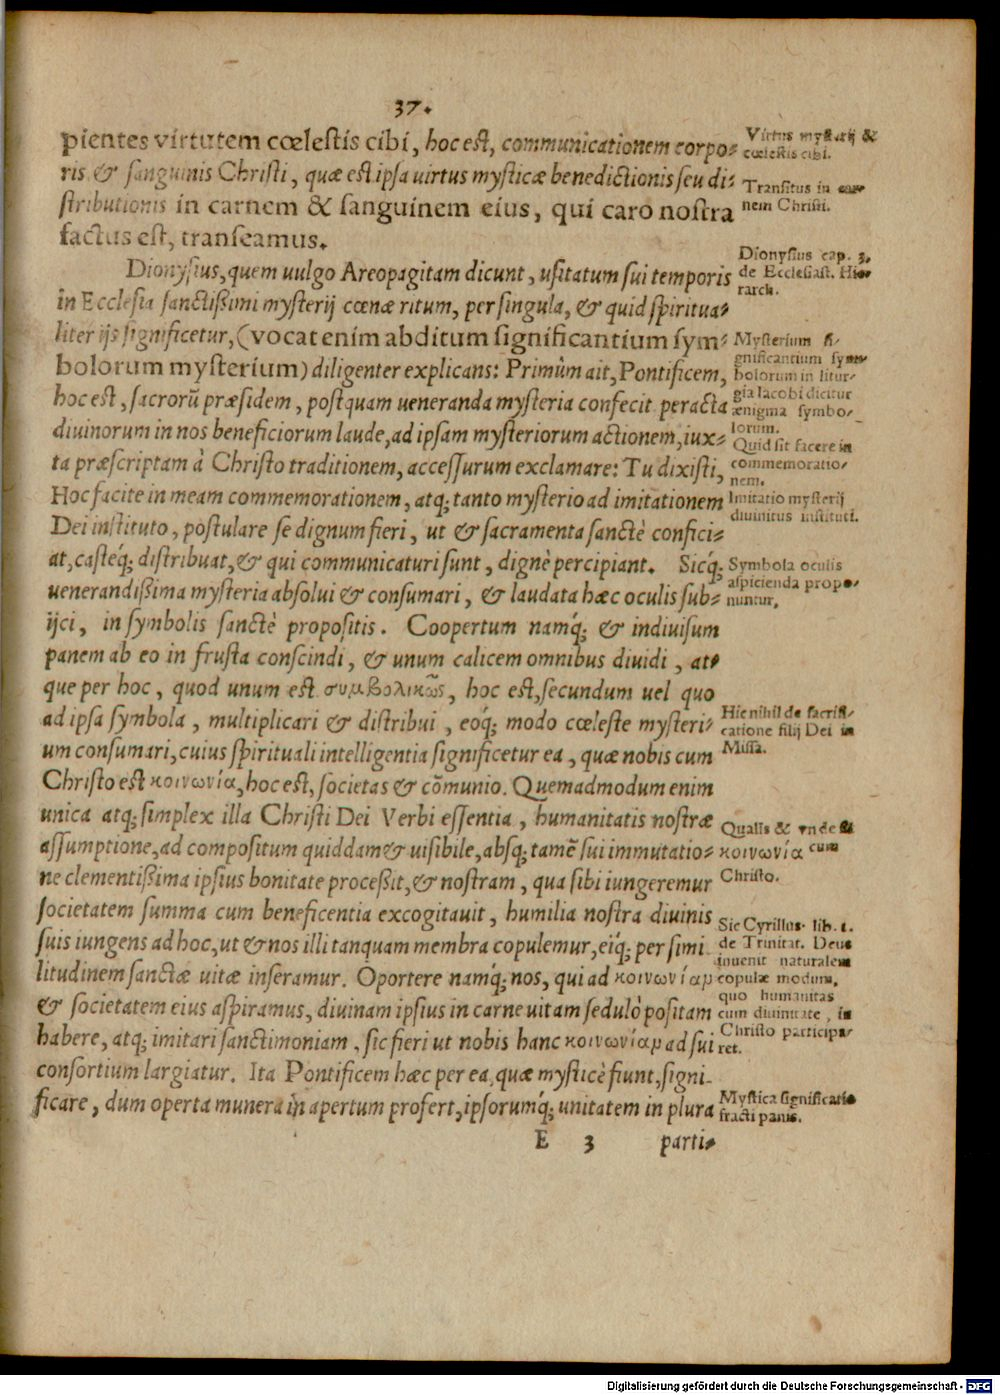 37.
pientes virtutem cœlestis cibi, hoc est, communicationem corpo-
ris & sanguinis Christi, quæ est ipsa uirtus mysticæ benedictionis seu di-
stributionis in carnem & sanguinem eius, qui caro nostra
factus est, transeamus.
Dionysius, quem uulgo Areopagitam dicunt, usitatum sui temporis
in Ecclesia sanctißimi mysterij cœnæ ritum, per singula, & quid spiritua-
liter ijs significetur, (vocat enim abditum significantium sym-
bolorum mysterium) diligenter explicans: Primùm ait, Pontificem,
hoc est, sacrorũ præsidem, postquam ueneranda mysteria confecit peracta
diuinorum in nos beneficiorum laude, ad ipsam mysteriorum actionem, iux-
ta præscriptam à Christo traditionem, accessurum exclamare: Tu dixisti,
Hoc facite in meam commemorationem, atq; tanto mysterio ad imitationem
Dei instituto, postulare se dignum fieri, ut & sacramenta sanctè confici-
at, casteq́; distribuat, & qui communicaturi sunt, dignè percipiant. Sicq́;
uenerandißima mysteria absolui & consumari, & laudata hæc oculis sub-
ijci, in symbolis sanctè propositis. Coopertum namq́; & indiuisum
panem ab eo in frusta conscindi, & unum calicem omnibus diuidi, at-
que per hoc, quod unum est συμβολικῶς, hoc est, secundum uel quo
ad ipsa symbola, multiplicari & distribui, eoq́; modo cœleste mysteri-
um consumari, cuius spirituali intelligentia significetur ea, quæ nobis cum
Christo est κοινωνία, hoc est, societas & cõmunio. Quemadmodum enim
unica atq; simplex illa Christi Dei Verbi essentia, humanitatis nostræ
assumptione, ad compositum quiddam & uisibile, absq; tamẽ sui immutatio-
ne clementißima ipsius bonitate proceßit, & nostram, qua sibi iungeremur
societatem summa cum beneficentia excogitauit, humilia nostra diuinis
suis iungens ad hoc, ut & nos illi tanquam membra copulemur, eiq́; per simi
litudinem sanctæ uitæ inseramur. Oportere namq́; nos, qui ad κοινωνίαμ
& societatem eius aspiramus, diuinam ipsius in carne uitam sedulò positam
habere, atq; imitari sanctimoniam, sic fieri ut nobis hanc κοινωνίαμ ad sui
consortium largiatur. Ita Pontificem hæc per ea, quæ mysticè fiunt, signi-
ficare, dum operta munera in apertum profert, ipsorumq́; unitatem in plura
E 3 parti-
Virtus mysterij &
cœlestis cibi.
Transitus in car-
nem Christi.
Dionysius cap. 3.
de Ecclesiast. Hie-
rarch.
Mysterium si-
gnificantium sym-
bolorum in litur-
gia Iacobi dicitur
ænigma symbo-
lorum.
Quid sit facere in
commemoratio-
nem.
Imitatio mysterij
diuinitus instituti.
Symbola oculis
aspicienda propo-
nuntur.
Hic nihil de sacrifi-
catione filij Dei in
Missa.
Qualis & vnde sit
κοινωνία cum
Christo.
Sic Cyrillus lib. 1.
de Trinitat. Deus
inuenit naturalem
copulæ modum,
quo humanitas
cum diuinitate, in
Christo participa-
ret.
Mystica significatio
fracti panis.
Digitalisierung gefördert durch die Deutsche Forschungsgemeinschaft - DFG